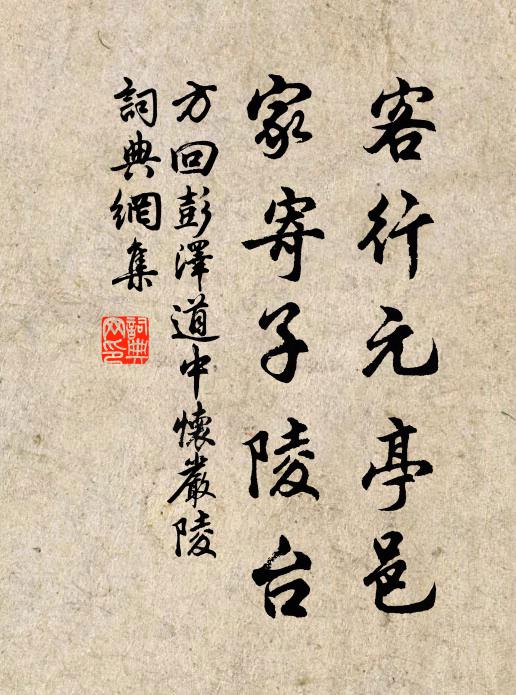 客行元亭邑
家寄子陵台
方回彭澤道中懷嚴陵
詞典網集
詞典网印